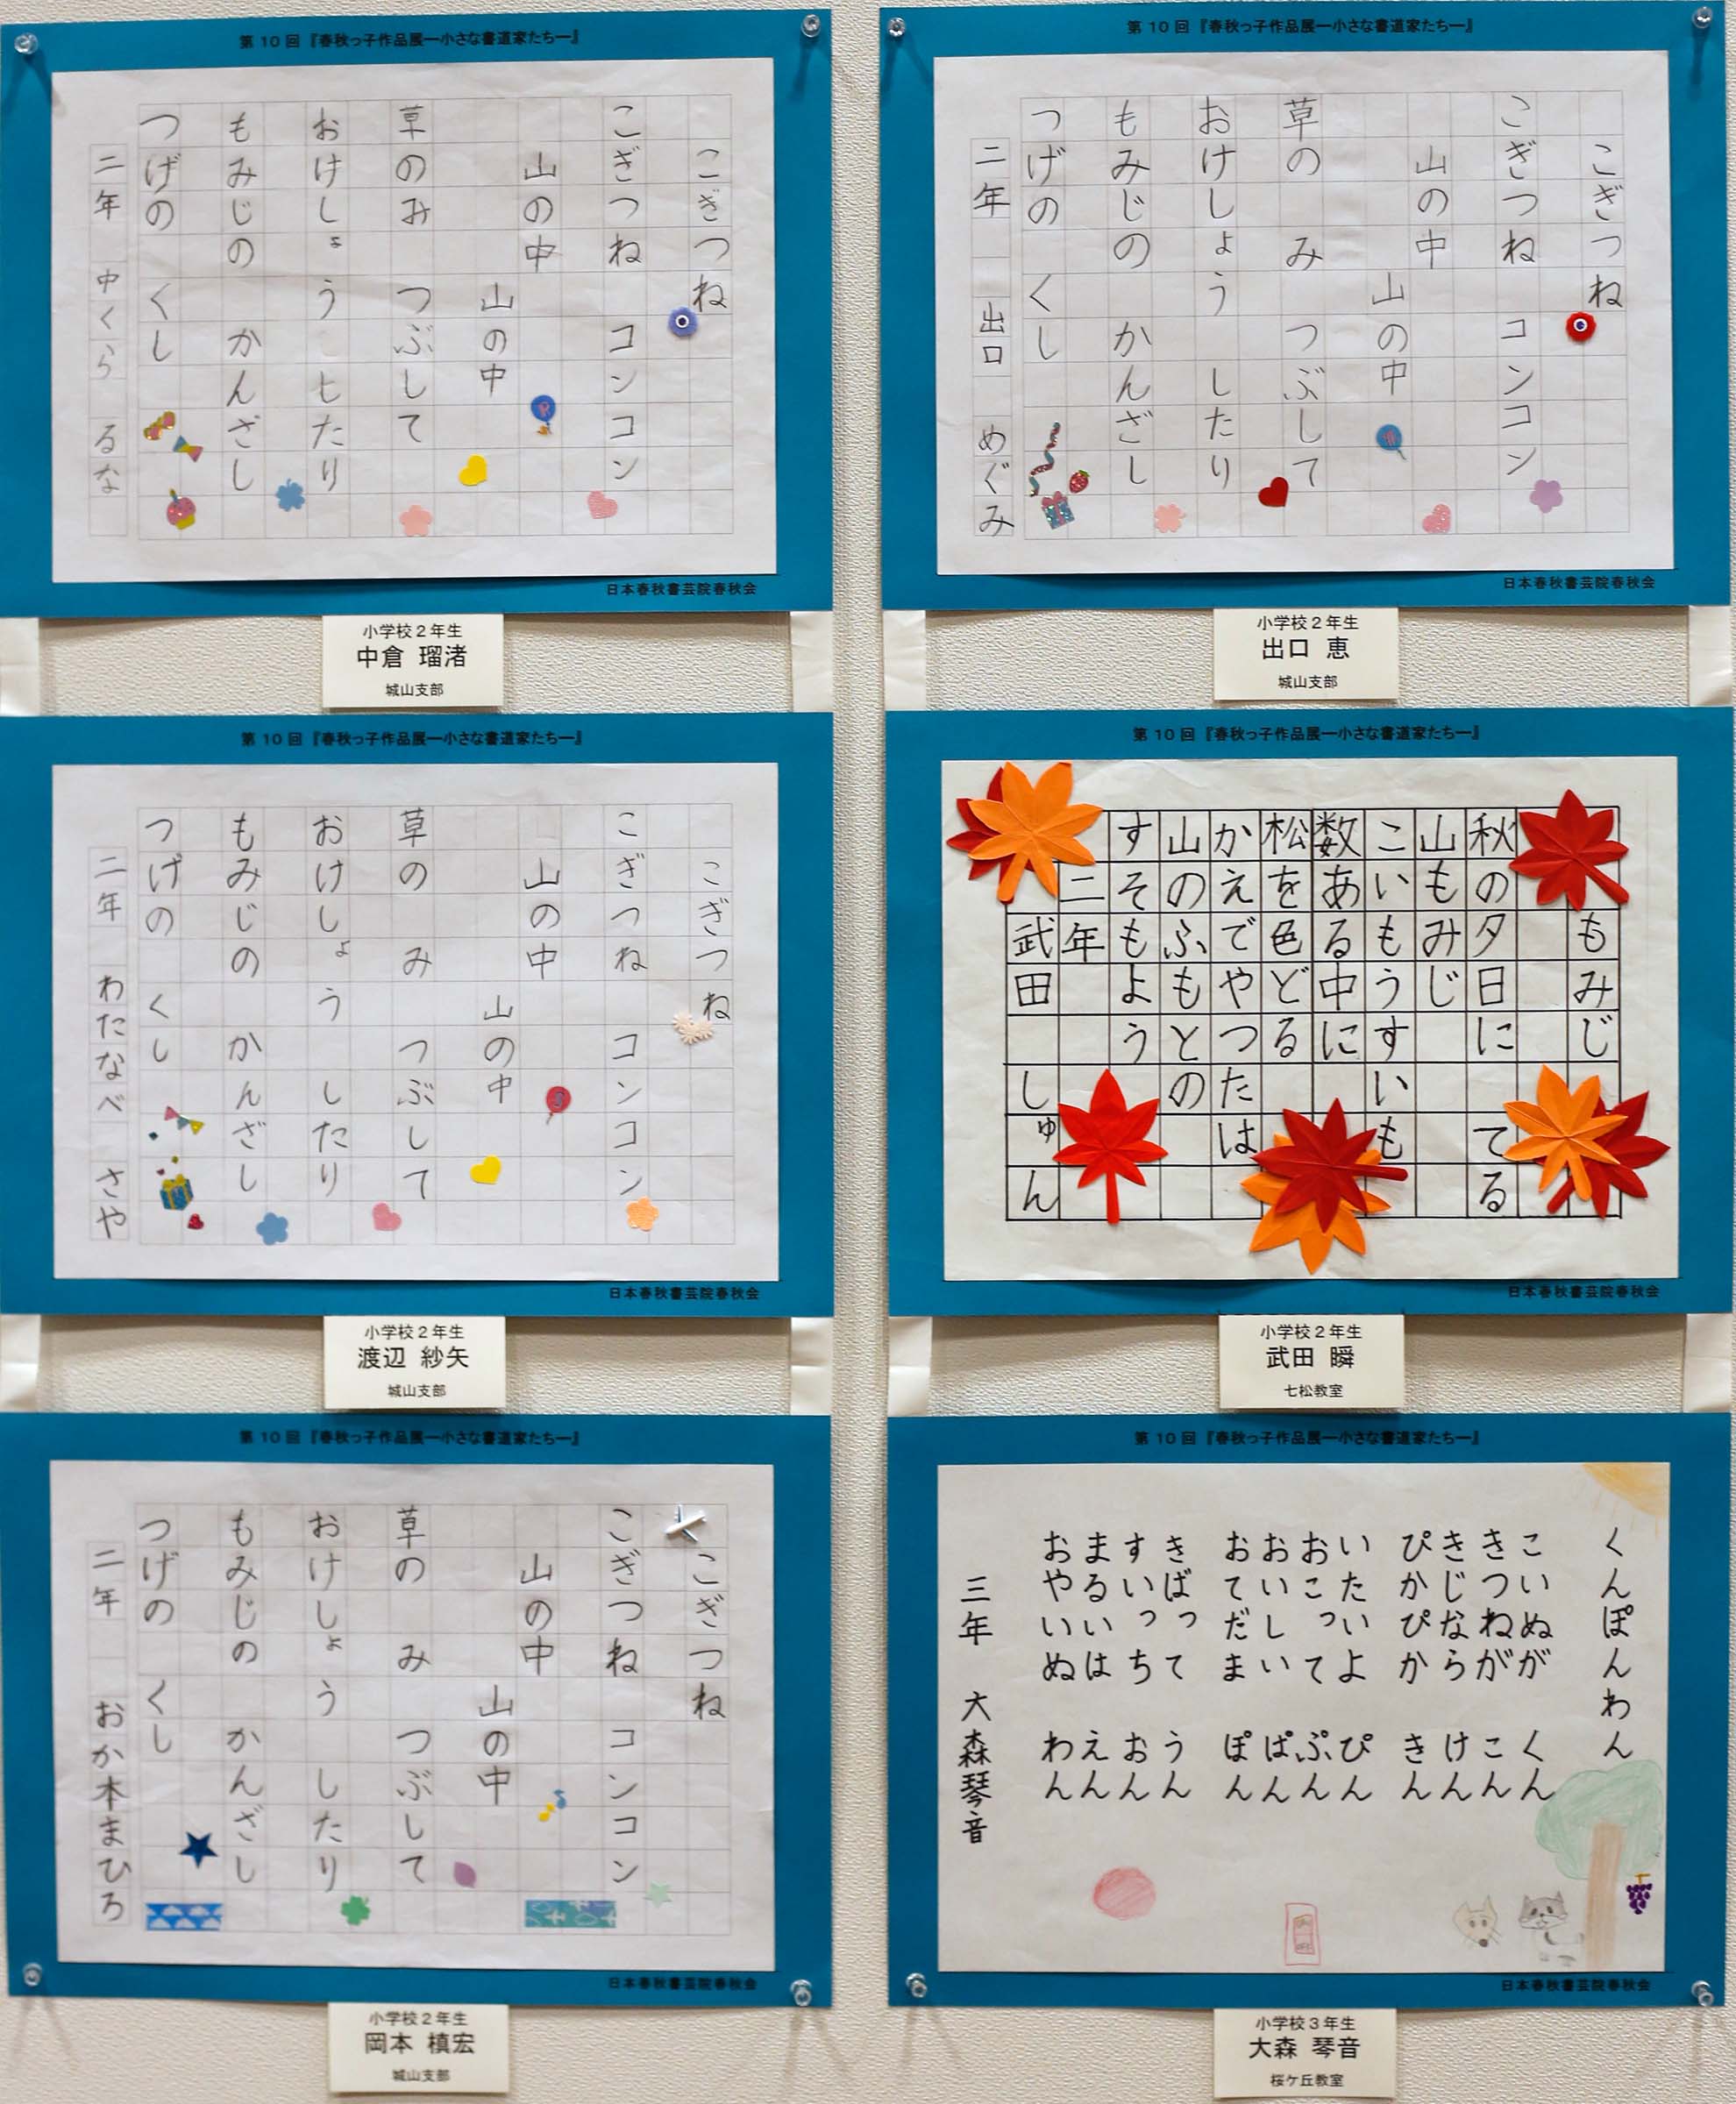 第10回『春秋っ子作品展―小さな書道家たち―』
こぎつね
こぎつね コンコン
山の中
山の中
草のみ つぶして
おけしょう したり
もみじの かんざし
つげの くし
二年 中くら るな
日本春秋書芸院春秋会
小学校2年生
中倉 瑠渚
城山支部
第10回『春秋っ子作品展―小さな書道家たち―』
こぎつね
こぎつね コンコン
山の中
山の中
草の み つぶして
おけしょう したり
もみじの かんざし
つげの くし
二年 出口 めぐみ
日本春秋書芸院春秋会
小学校2年生
出口 恵
城山支部
第10回『春秋っ子作品展―小さな書道家たち―』
こぎつね
こぎつね コンコン
山の中
山の中
草の み つぶして
おけしょう したり
もみじの かんざし
つげの くし
二年 わたなべ さや
日本春秋書芸院春秋会
小学校2年生
渡辺 紗矢
城山支部
第10回『春秋っ子作品展―小さな書道家たち―』
もみじ
秋の夕日に てる
山もみじ
こいもうすいも
数ある中に
松を色どる
かえでやつたは
山のふもとの
すそもよう
二年
武田 しゅん
日本春秋書芸院春秋会
小学校2年生
武田 瞬
七松教室
第10回『春秋っ子作品展―小さな書道家たち―』
こぎつね
こぎつね コンコン
山の中
山の中
草の み つぶして
おけしょう したり
もみじの かんざし
つげの くし
二年 おか本まひろ
日本春秋書芸院春秋会
小学校2年生
岡本 槙宏
城山支部
第10回『春秋っ子作品展―小さな書道家たち―』
くんぽんわん
こいぬが くん
きつねが こん
きじなら けん
ぴかぴか きん
いたいよ ぴん
おこって ぷん
おいしい ぱん
おてだま ぽん
きばって うん
すいっち おん
まるいは えん
おやいぬ わん
三年 大森琴音
日本春秋書芸院春秋会
小学校3年生
大森 琴音
桜ケ丘教室